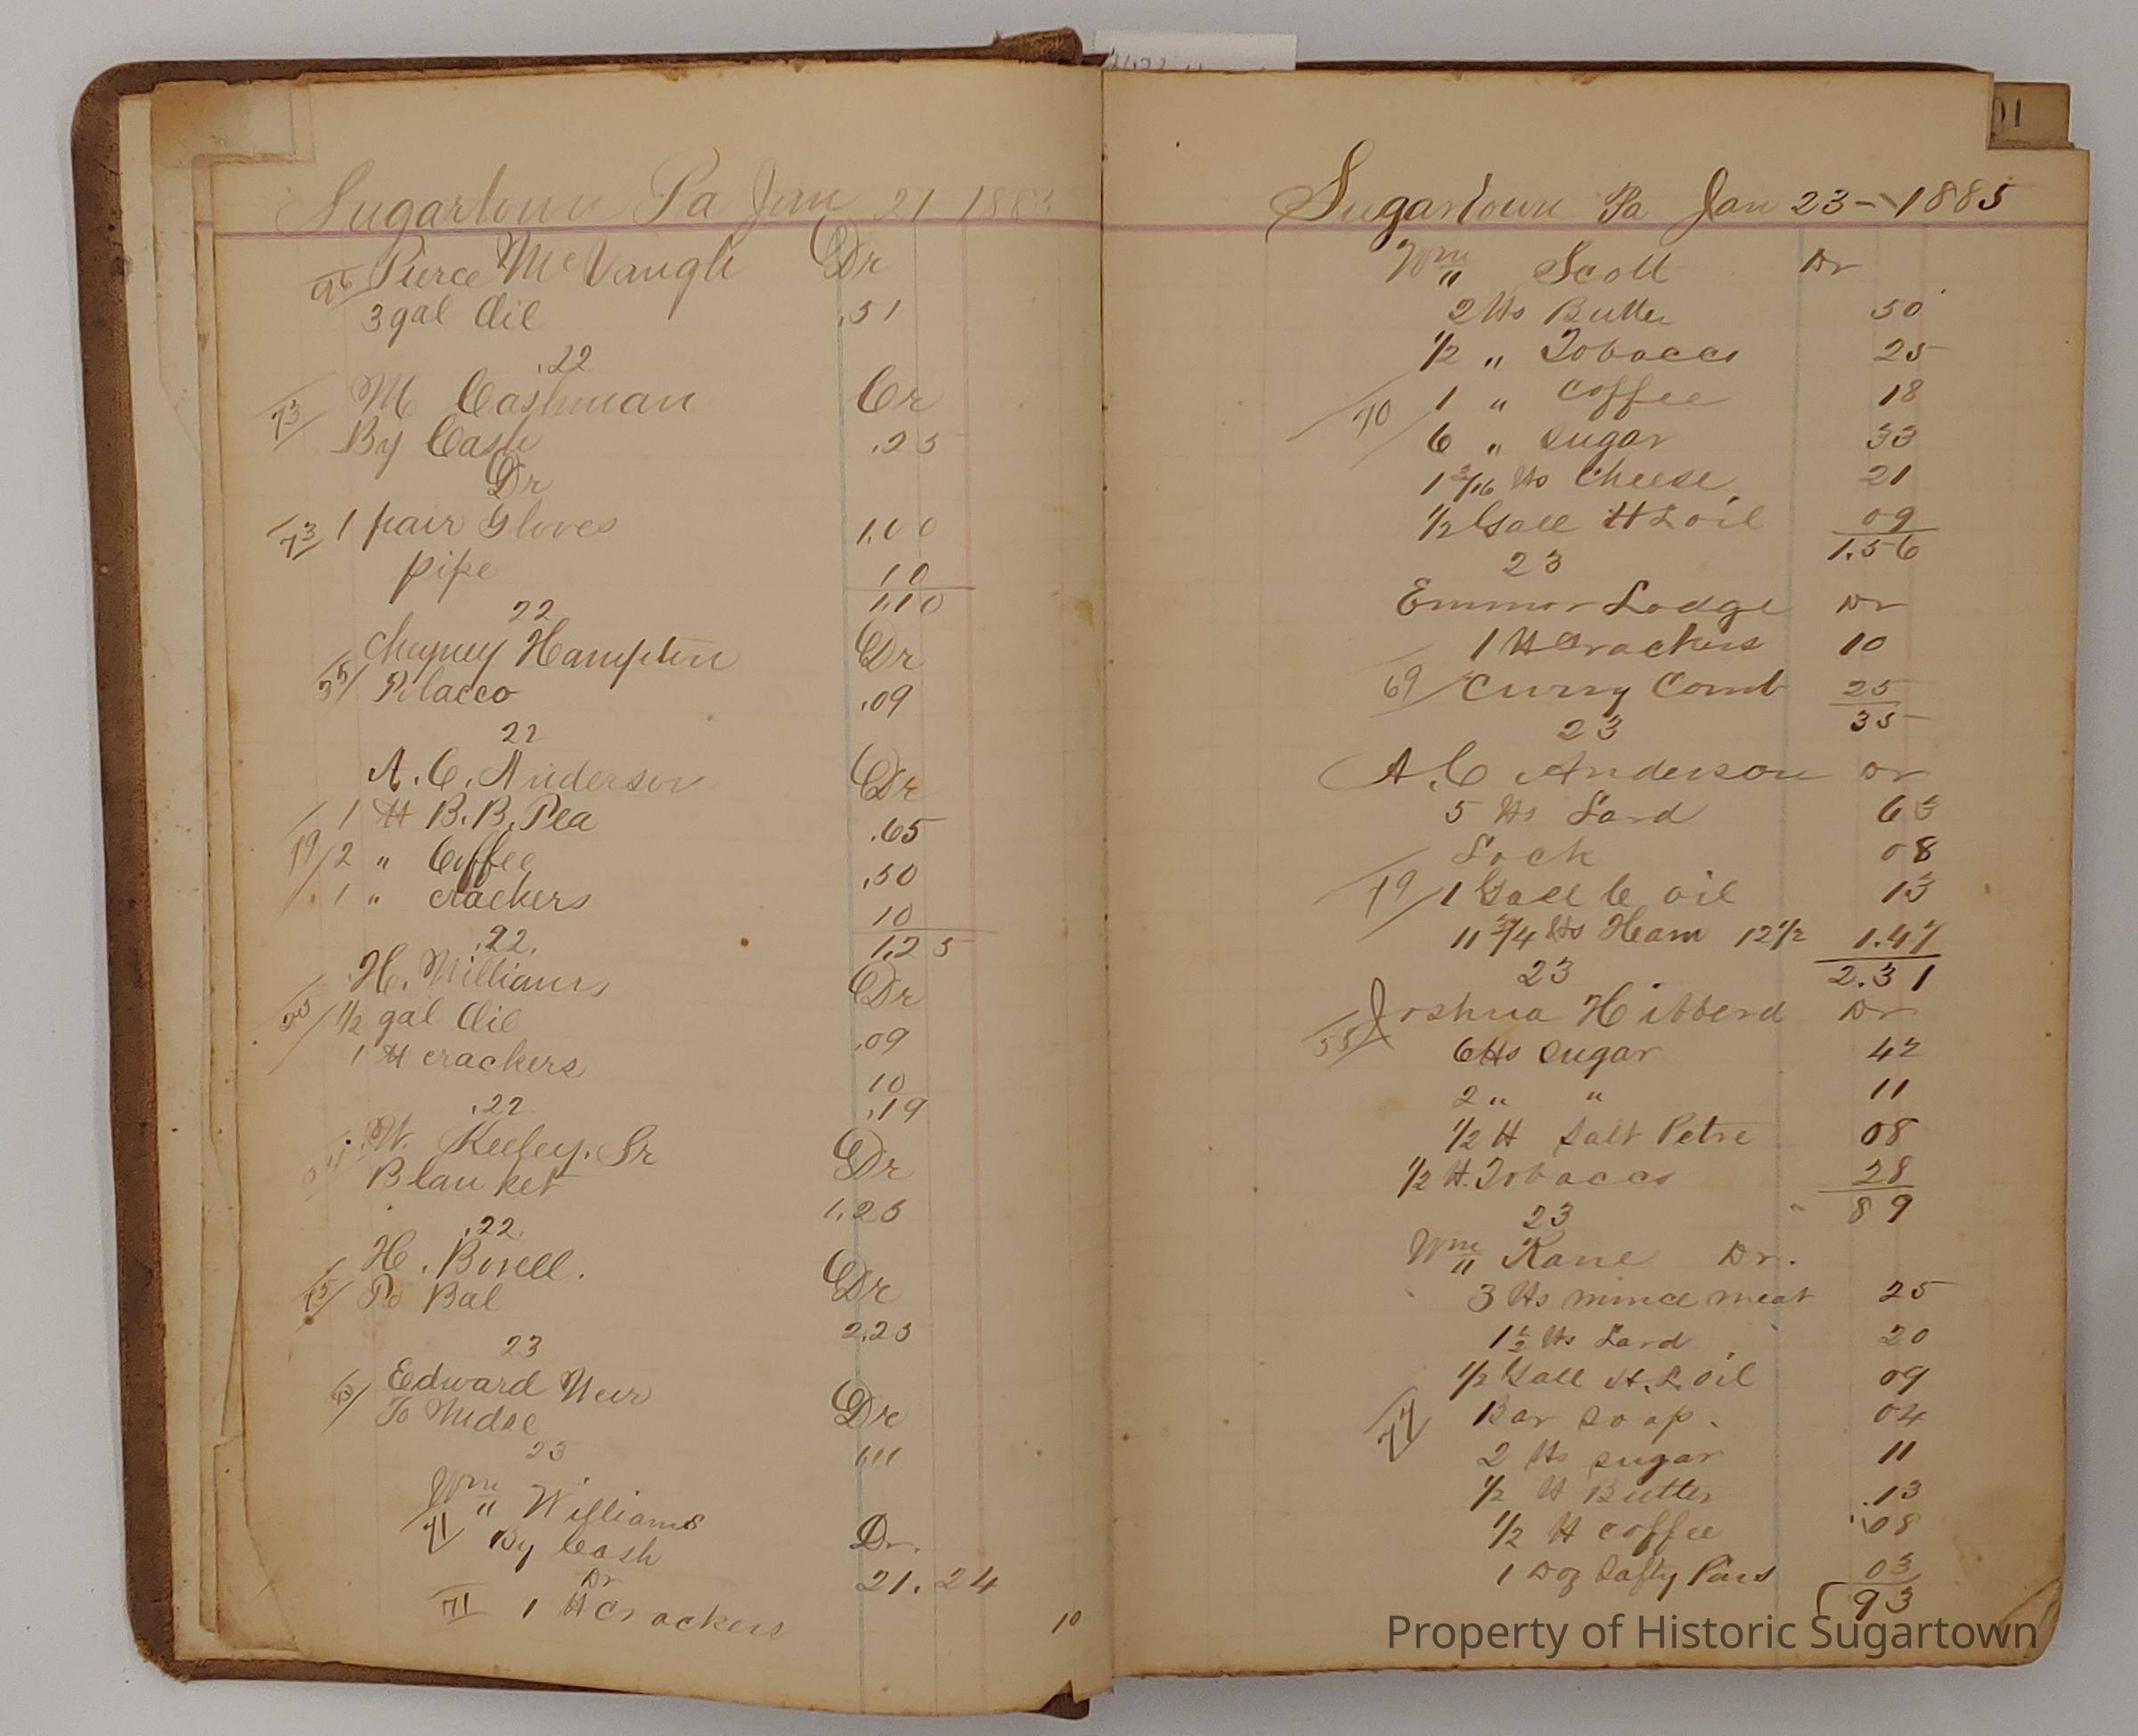 Sugartown Pa Jan 21 1885
96 Pierce McVaugh Dr
3 gal Oil .51
.22
73 M Cashman Cr
By Cash .25
Dr
73 1 pair Gloves 1.00
pipe 10
1.10
22
Cheyney Hampton Dr
35 Tobacco .09
22
A. C. Anderson Dr
1 ℔ B. B. Tea .65
19/2 " Coffee .50
1 " crackers 10
1.25
.22.
H. Williams Dr
1/2 gal Oil .09
1 ℔ crackers 10
.19
.22
W. Keeley. Sr Dr
Blanket 1.25
.22.
H. Borell. Dr
75 To Bal 2.25
23
Edward Weir Dr
To Mdse 1.11
23
Wm " Williams
71 By Cash Dr.
Dr 21.24
71 1 ℔ Crackers 10
01
Sugartown Pa Jan 23 - 1885
Wm " Scott Dr
2 ℔s Butter 50
1/2 " Tobacco 25
1 " Coffee 18
70 6 " Sugar 33
1 3/16 ℔s Cheese 21
1/2 Gall H L oil 09
1.56
23
Emmor Lodge Dr
1 ℔ Crackers 10
69 Curry Comb 25
35
23
A. C Anderson Dr
5 ℔s Lard 63
Lock 08
19 1 Gall C oil 13
11 3/4 ℔s Ham 12 1/2 1.47
2.31
23
Joshua Hibberd Dr
55 6 ℔s Sugar 42
2 " " 11
1/2 ℔ Salt Petre 08
1/2 ℔. Tobacco 28
89
23
Wm " Kane Dr.
3 ℔s mince meat 25
1 1/2 ℔s Lard 20
1/2 Gall H. L. oil 09
77 Bar Soap. 04
2 ℔s sugar 11
1/2 ℔ Butter .13
1/2 ℔ coffee 08
1 Doz Safty Pins 03
93
Property of Historic Sugartown